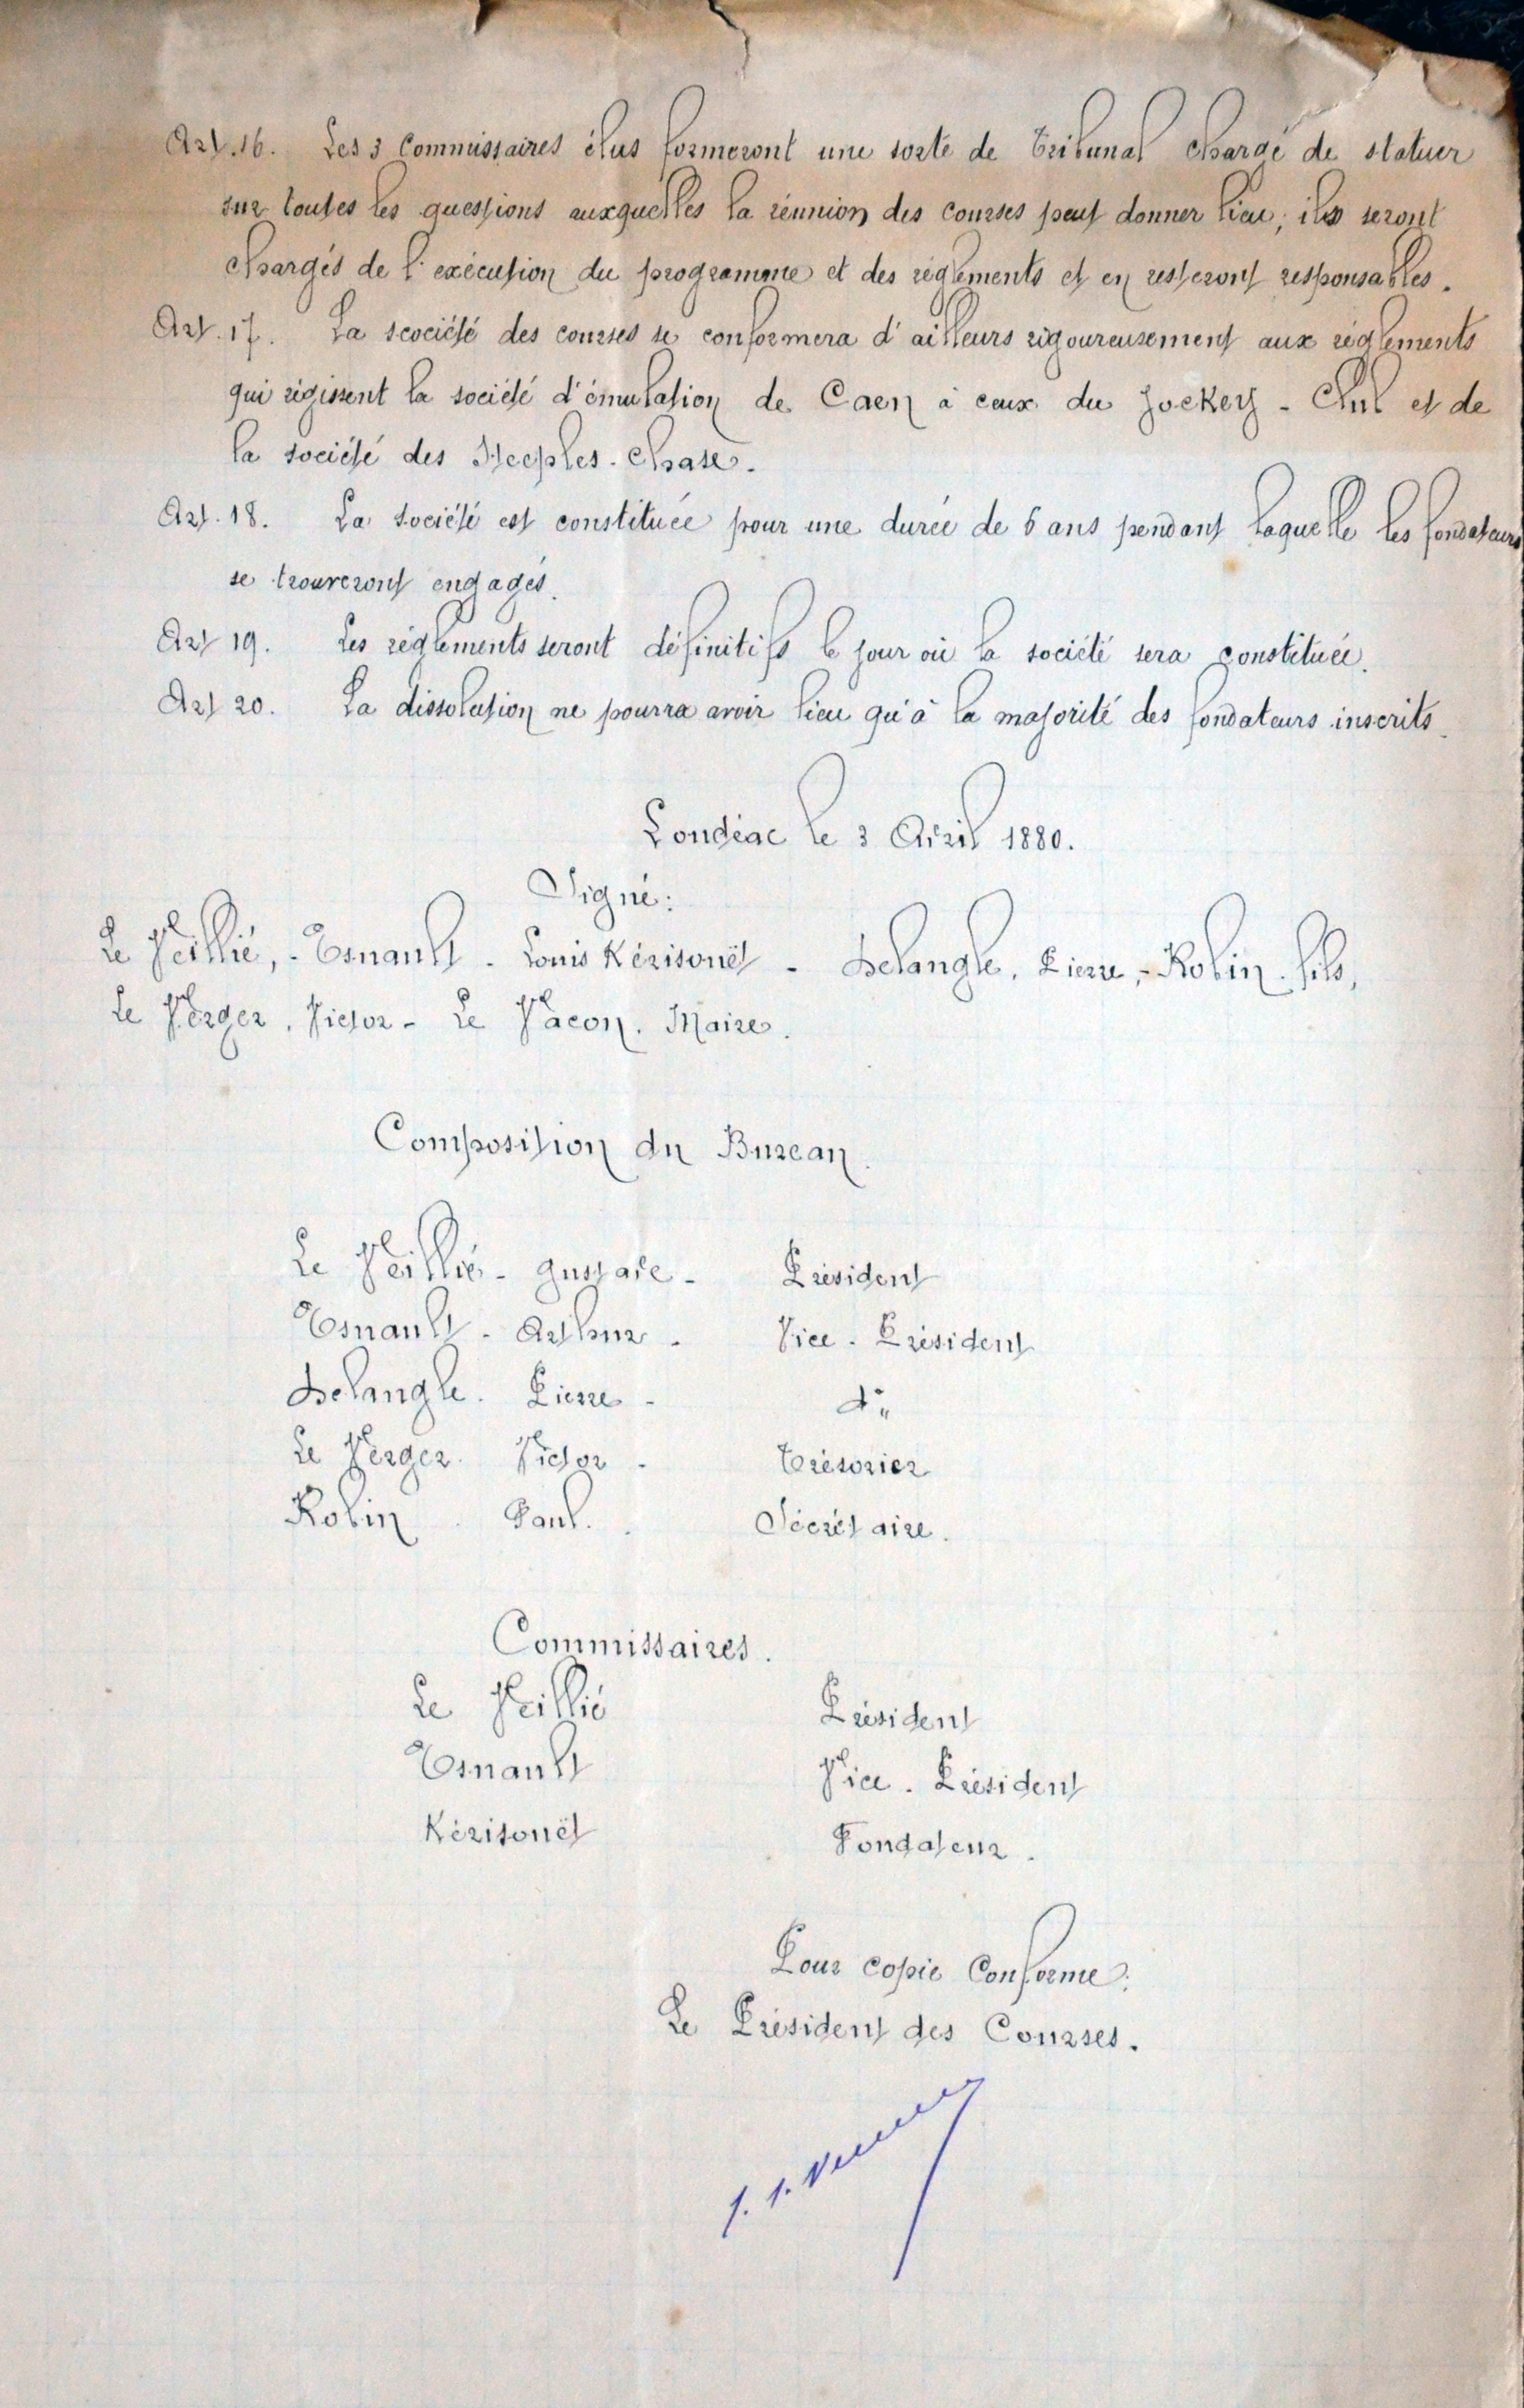 Art. 16. Les 3 Commissaires élus formeront une sorte de Tribunal chargé de statuer
sur toutes les questions auxquelles la réunion des courses peut donner lieu, ils seront
chargés de l'exécution du programme et des réglements et en resteront responsables.
Art. 17. La scociété des courses se conformera d'ailleurs rigoureusement aux réglements
qui régissent la société d'émulation de Caen à ceux du Jockey - Club et de
la société des Steeples - Chase.
Art. 18. La société est constituée pour une durée de 5 ans pendant laquelle les fondateurs
se trouveront engagés.
Art 19. Les réglements seront définitifs le jour où la société sera constituée.
Art 20. La dissolution ne pourra avoir lieu qu'à la majorité des fondateurs inscrits.
Loudéac le 3 Avril 1880.
Signé:
Le Veillié, - Esnault - Louis Kérisouët - Delangle. Pierre, - Robin fils,
Le Verger. Victor - Le Vacon. Maire.
Composition du Bureau.
Le Veillié - Gustave - Président
Esnault - Arthur - Vice - Président
Delangle. Pierre - d°
Le Verger. Victor - Trésorier
Robin. Paul. Sécrétaire.
Commissaires.
Le Veillié Président
Esnault Vice - Président
Kérisouët Fondateur.
Pour copie Conforme:
Le Président des Courses.